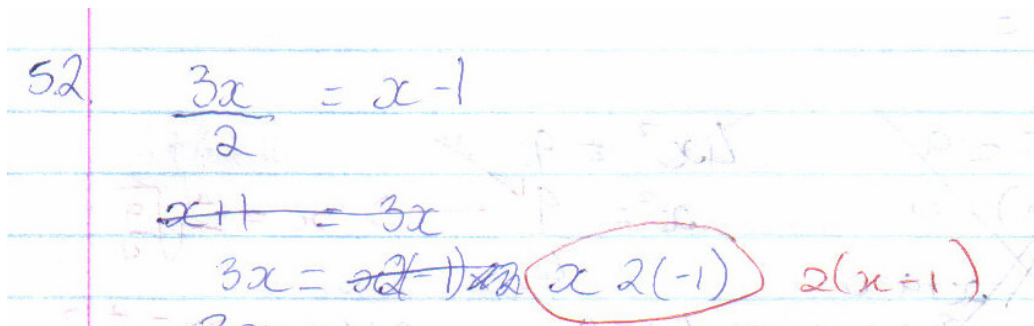 52. 3x/2 = x - 1
x + 1 = 3x
3x = x 2(-1) 2(x - 1)